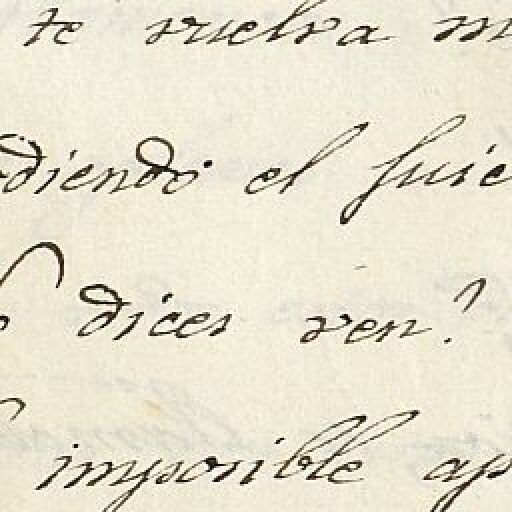 te vuelva m
diendo el juic
dices ven?
imposible ap